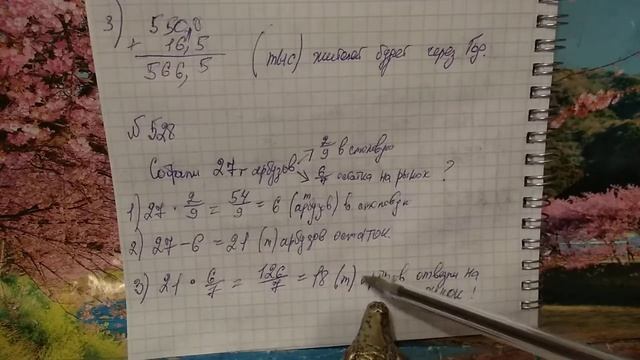 3) 550,0
+ 16,5
566,5 (тыс) жителей будет через год.
№528
Собрали 27т арбузов 2/9 в столовую
6/7 остатка на рынок ?
1) 27 · 2/9 = 54/9 = 6 (т арбузов) в столовую
2) 27 - 6 = 21 (т) арбузов остаток
3) 21 · 6/7 = 126/7 = 18 (т) отвезли на
!